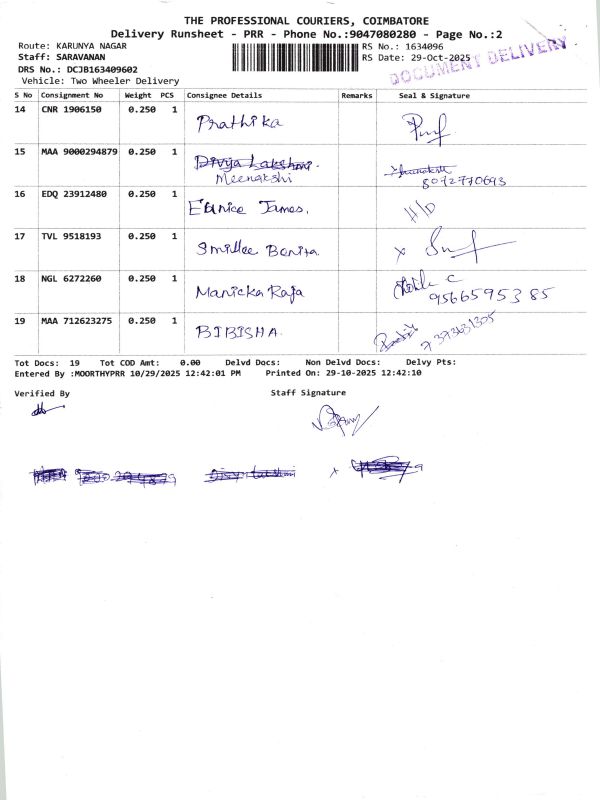 THE PROFESSIONAL COURIERS, COIMBATORE
Delivery Runsheet - PRR - Phone No.:9047080280 - Page No.:2
Route: KARUNYA NAGAR RS No.: 1634096
Staff: SARAVANAN RS Date: 29-Oct-2025
DRS No.: DCJB163409602
Vehicle: Two Wheeler Delivery
DOCUMENT DELIVERY
S No Consignment No Weight PCS Consignee Details Remarks Seal & Signature
14 CNR 1906150 0.250 1 Prathika
15 MAA 9000294879 0.250 1 Divya Lakshmi.
Meenakshi 8072770693
16 EDQ 23912480 0.250 1 Eunice James. H/D
17 TVL 9518193 0.250 1 Smillee Benita x
18 NGL 6272260 0.250 1 Manicka Raja
9566595385
19 MAA 712623275 0.250 1 BIBISHA.
Tot Docs: 19 Tot COD Amt: 0.00 Delvd Docs: Non Delvd Docs: Delvy Pts:
Entered By :MOORTHYPRR 10/29/2025 12:42:01 PM Printed On: 29-10-2025 12:42:10
Verified By Staff Signature